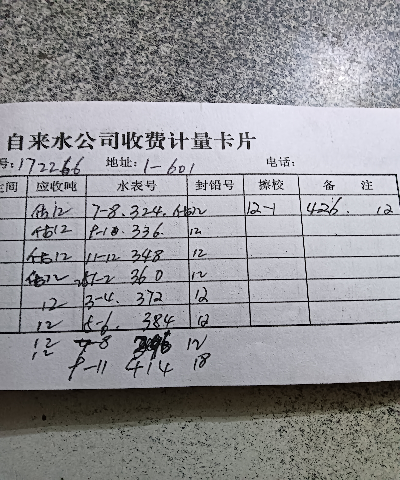 自来水公司收费计量卡片
号:172266 地址:1-601 电话:
间 应收吨 水表号 封铅号 擦校 备 注
估12 7-8. 324. 估12 12-1 426. 12
估12 9-10. 336 12
估12 11-12 348 12
估12 1-2 360 12
12 3-4. 372 12
12 5-6. 384 12
12 7-8 396 12
12 9-11 414 18